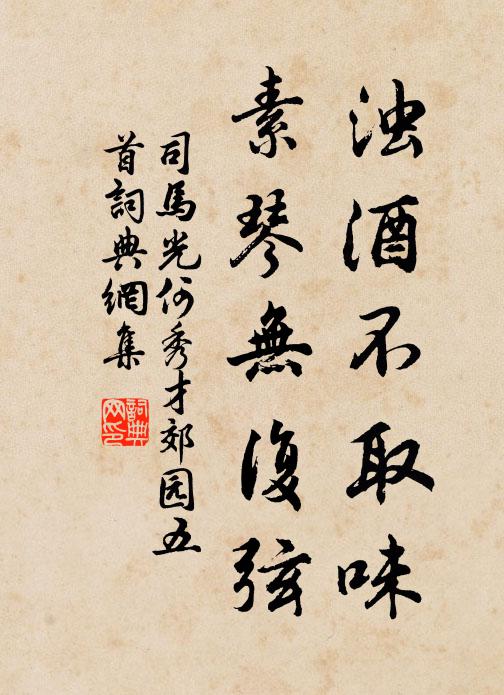 浊酒不取味
素琴無復弦
司馬光何秀才郊园五
首詞典網集
詞典
网印